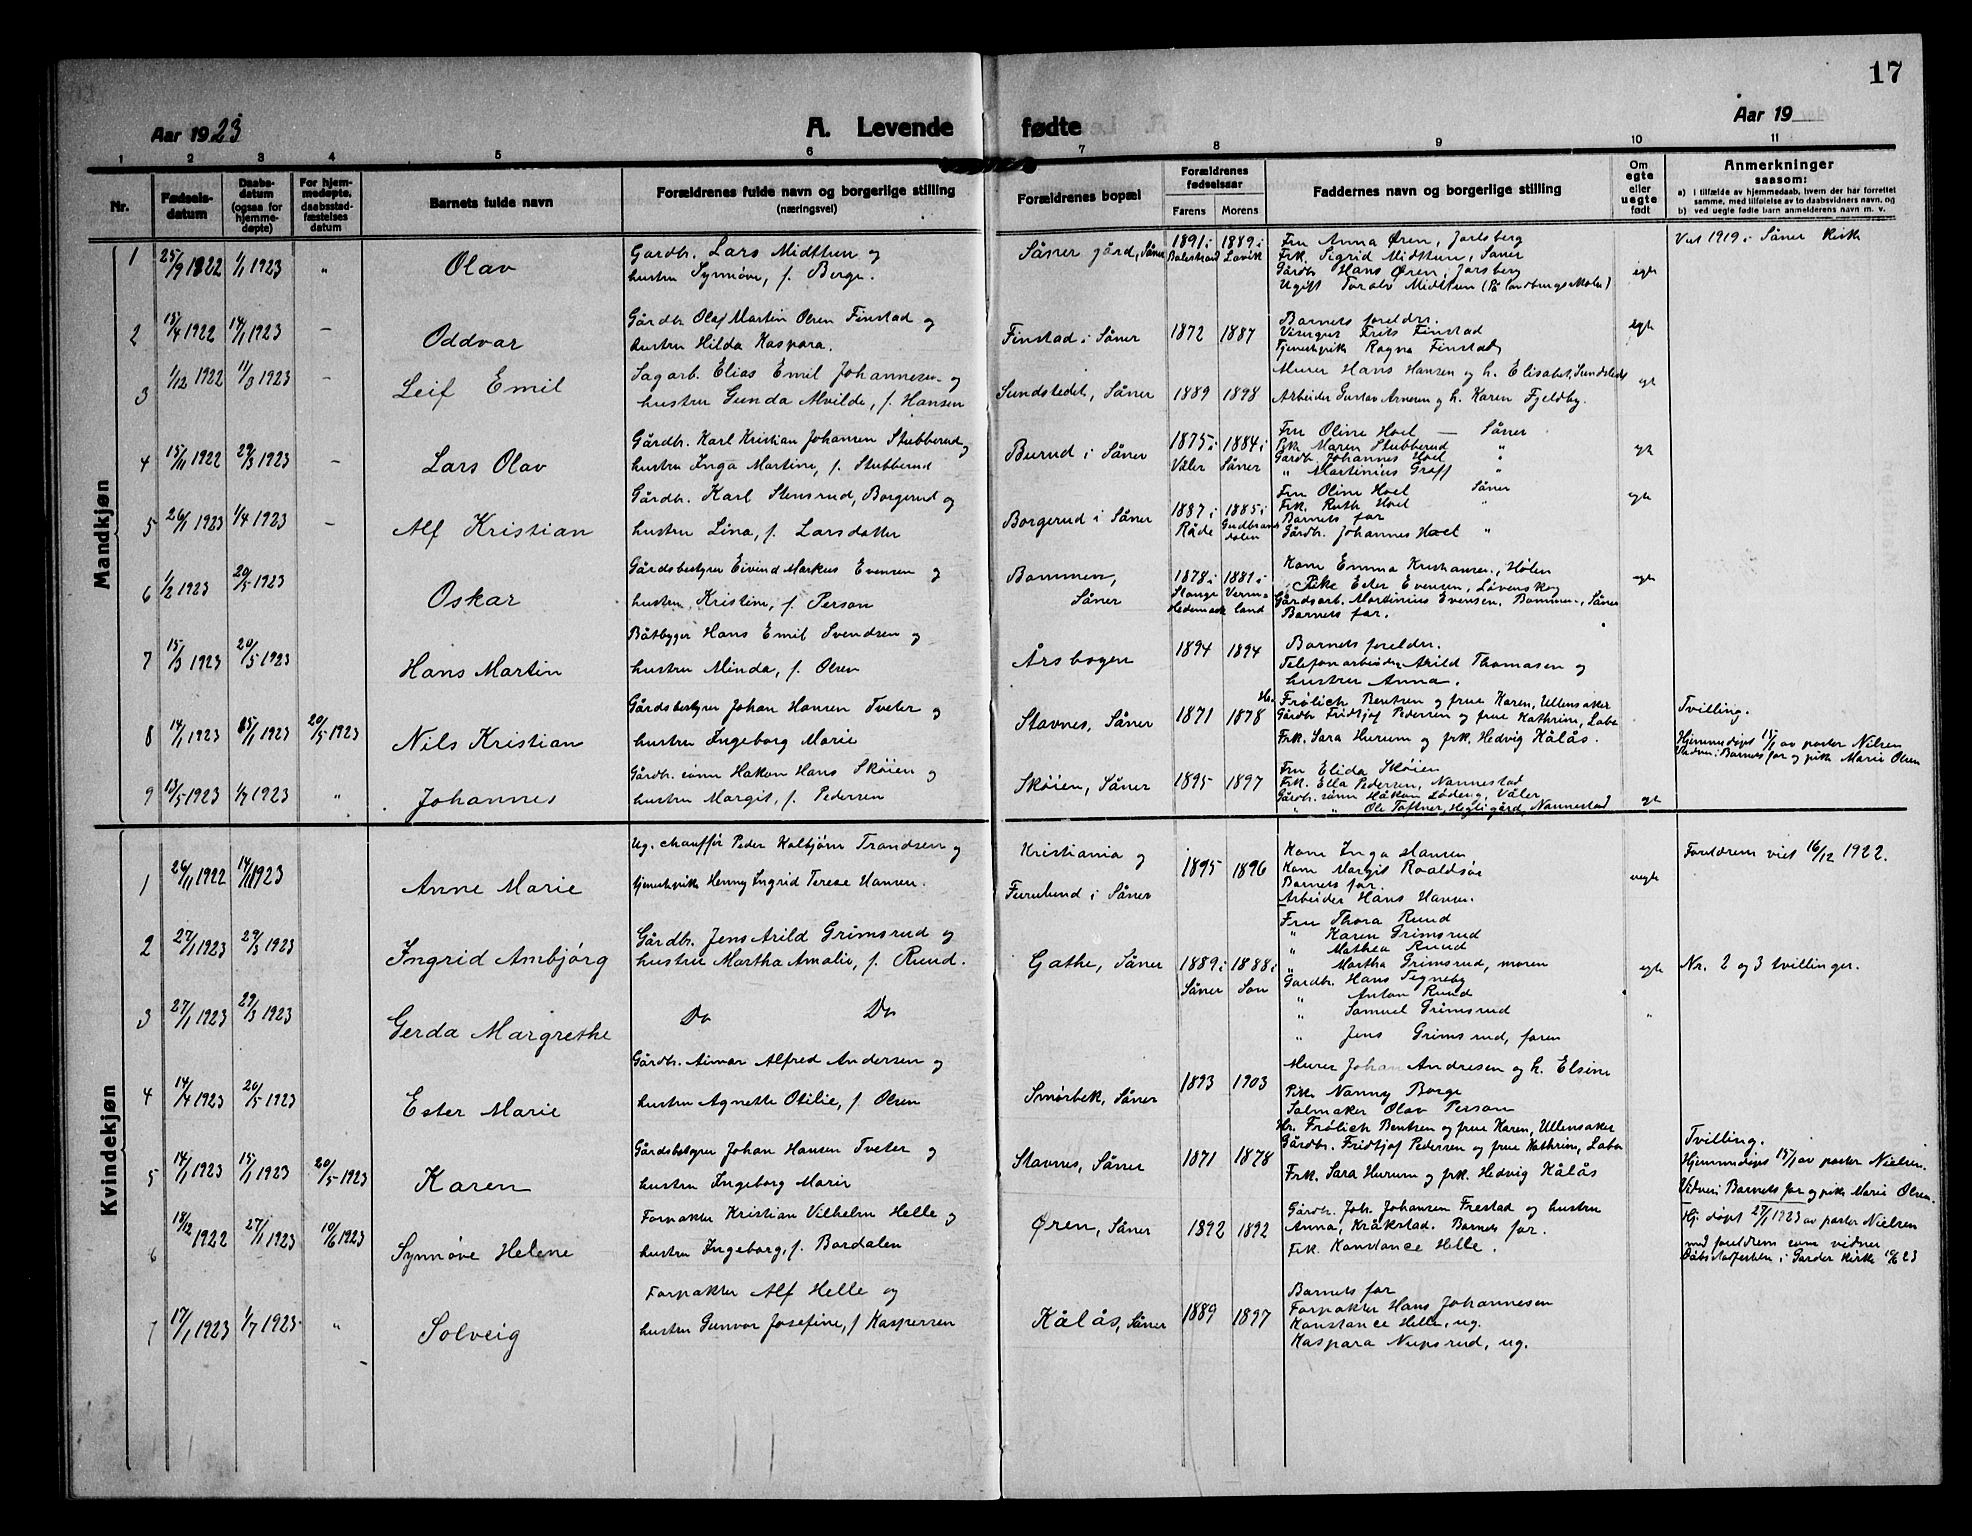 17
Aar 1923
A. Levende fødte
Aar 19
1 2 3 4 5 6 7 8 9 10 11
Nr.
Fødselsdatum
Daabsdatum (ogsaa for hjemmedøpte)
For hjemmedøpte, daabsstadfæstelses datum
Barnets fulde navn
Forældrenes fulde navn og borgerlige stilling (næringsvei)
Forældrenes bopæl
Forældrenes fødselsaar
Farens Morens
Faddernes navn og borgerlige stilling
Om egte eller uegte født
Anmerkninger saasom:
a) i tilfælde av hjemmedaab, hvem der har forrettet samme, med tilføielse av to daabsvidners navn, og
b) ved uegte fødte barn anmelderens navn m. v.
Mandkjøn
1 25/9 1922 1/1 1923 " Olav
Gardbr. Lars Midttun og
hustru Synnøve, f. Borge.
Såner gård, Såner
1891 i Balestrand 1889 i Lavik
Fru Anna Øren, Jarlsberg
Frk. Sigrid Midttun, Såner
Gårdbr. Hans Øren, Jarsberg
Ugift Toralv Midttun (På landbrugsskolen)
egte
Viet 1919 i Såner kirke
2 15/4 1922 14/1 1923 — Oddvar
Gårdbr. Olaf Martin Olsen Finstad og
hustru Hilda Kaspara.
Finstad i Såner
1872 1887
Barnets foreldre.
Visergut Frits Finstad
Tjenestepike Ragna Finstad
egte
3 1/12 1922 11/3 1923 — Leif Emil
Sagarb. Elias Emil Johannesen og
hustru Gunda Alvilde, f. Hansen
Sundstedet, Såner
1889 1898
Murer Hans Hansen og h. Elisabet, Sundstedet
Arbeider Gustav Arnesen og h. Karen Fjeldby.
egte
4 15/11 1922 29/3 1923 — Lars Olav
Gårdbr. Karl Kristian Johansen Stubberud og
hustru Inga Martine, f. Stubberud
Burud i Såner
1875 i Våler 1884 i Såner
Fru Oline Hoel — Såner
Pik. Maren Stubberud "
Gårdb. Johannes Hoel "
" Martinius Graff "
egte
5 26/1 1923 1/4 1923 — Alf Kristian
Gårdbr. Karl Stensrud, Borgerud og
hustru Lina, f. Larsdatter
Borgerud i Såner
1887 i Råde 1885 i Gudbrandsdalen
Fru Oline Hoel Såner
Frk. Ruth Hoel "
Barnets far
Gårdbr. Johannes Hoel "
egte
6 1/2 1923 20/5 1923 Oskar
Gårdsbestyrer Eivind Markus Evensen og
hustru Kristine, f. Person
Bommen, Såner
1878 i Stange Hedemark 1881 i Vermaland
Kone Emma Kristiansen, Hølen
Pike Ester Evensen, Løvenskog
Gårdsarb. Martinius Evensen, Bommen, Såner
Barnets far.
egte
7 15/3 1923 20/5 1923 Hans Martin
Båtbygger Hans Emil Svendsen og
hustru Minda, f. Olsen
Årsbogen
1894 1894
Barnets foreldre.
Telefonarbeider Arild Thomasen og
hustru Anna.
8 14/1 1923 15/1 1923 20/5 1923 Nils Kristian
Gårdsbestyrer Johan Hansen Tveter og
hustru Ingeborg Marie
Stavnes, Såner
1871 1878
Hr. Frølich Bentsen og frue Karen, Ullensaker
Gårdbr. Fridtjof Pedersen og frue Kathrine, Labo
Frk. Sara Hurum og frk. Hedvig Kålås.
Tvilling.
Hjemmedøpt 15/1 av pastor Nilsen
Vidner: Barnets far og pike Marie Olsen
9 13/5 1923 1/7 1923 " Johannes
Gårdbr. sønn Hakon Hans Skøien og
hustru Margit, f. Pedersen
Skøien, Såner
1895 1897
Fru Elida Skøien
Frk. Ella Pedersen, Nannestad
Gårdbr. sønn Håkon Lødeng, Våler
" " Ole Toftner, Hegli gård, Nannestad
egte
Kvindekjøn
1 26/11 1922 14/1 1923 Anne Marie
Ug. chauffør Peder Kolbjørn Trondsen og
tjenestepike Henny Ingrid Terese Hansen.
Kristiania og
Furulund i Såner
1895 1896
Kone Inga Hansen
Kone Margit Roaldsøe
Barnets far.
Arbeider Hans Hansen.
uegte
Foreldrene viet 16/12 1922.
2 27/1 1923 29/3 1923 Ingrid Ambjørg
Gårdbr. Jens Arild Grimsrud og
hustru Martha Amalie, f. Ruud.
Gathe, Såner
1889 i Såner 1888 i Son
Fru Thora Ruud
" Karen Grimsrud
" Mathea Ruud
" Martha Grimsrud, moren
Gardbr. Hans Tegneby
" Anton Ruud
" Samuel Grimsrud
" Jens Grimsrud, faren
egte
Nr. 2 og 3 tvillinger.
3 27/1 1923 29/3 1923 Gerda Margrethe
Do Do
"
4 14/4 1923 20/5 1923 Ester Marie
Gårdbr. Aimar Alfred Andersen og
hustru Agnette Otilie, f. Olsen
Smørbek, Såner
1893 1903
Murer Johan Andresen og h. Elsine
Pike Nanny Borge
Salmaker Olav Person
5 14/1 1923 15/1 1923 20/5 1923 Karen
Gårdsbestyrer Johan Hansen Tveter og
hustru Ingeborg Marie
Stavnes, Såner
1871 1878
Hr. Frølich Bentsen og frue Karen, Ullensaker
Gårdbr. Fridtjof Pedersen og frue Kathrine, Labo
Frk. Sara Hurum og frk. Hedvig Kålås
Tvilling.
Hjemmedøpt 15/1 av pastor Nielsen.
Vidner: Barnets far og pike Marie Olsen.
6 18/12 1922 27/1 1923 10/6 1923 Synnøve Helene
Forpakter Kristian Vilhelm Helle og
hustru Ingeborg, f. Bordalen
Øren, Såner
1892 1892
Gårdbr. Joh. Johansen Frestad og hustru
Anna, Kråkstad. Barnets far.
Frk. Konstance Helle.
Hj. døpt 27/1 1923 av pastor Nielsen
med foreldrene som vidner
Dåbsstadfestelsen i Garder kirke 10/6 23
7 17/1 1923 1/7 1923 " Solveig
Forpakter Alf Helle og
hustru Gunvor Josefine, f Kaspersen
Kålås, Såner
1889 1897
Barnets far
Forpakter Hans Johannesen
Konstance Helle, ug.
Kaspara Nupsrud, ug.